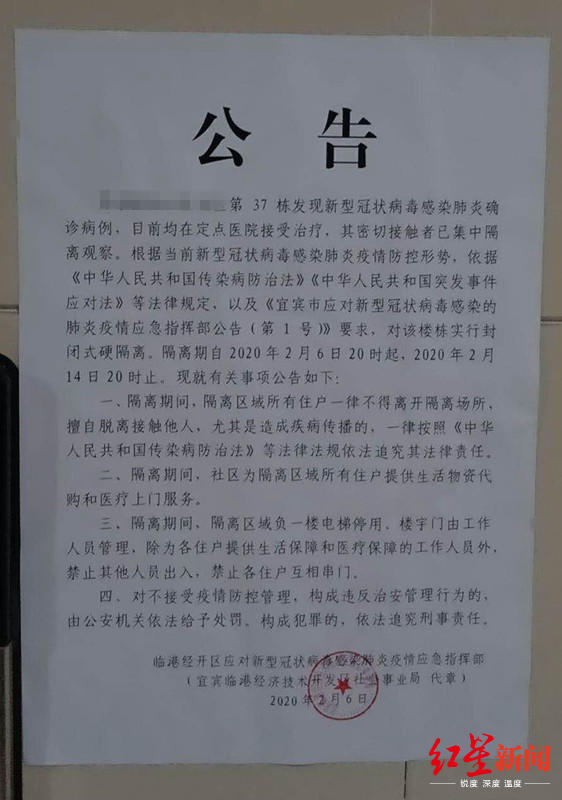 公 告
第 37 栋发现新型冠状病毒感染肺炎确
诊病例，目前均在定点医院接受治疗，其密切接触者已集中隔
离观察。根据当前新型冠状病毒感染肺炎疫情防控形势，依据
《中华人民共和国传染病防治法》《中华人民共和国突发事件
应对法》等法律规定，以及《宜宾市应对新型冠状病毒感染的
肺炎疫情应急指挥部公告（第 1 号）》要求，对该楼栋实行封
闭式硬隔离。隔离期自 2020 年 2 月 6 日 20 时起，2020 年 2 月
14 日 20 时止。现就有关事项公告如下：
一、隔离期间，隔离区域所有住户一律不得离开隔离场所，
擅自脱离接触他人，尤其是造成疾病传播的，一律按照《中华
人民共和国传染病防治法》等法律法规依法追究其法律责任。
二、隔离期间，社区为隔离区域所有住户提供生活物资代
购和医疗上门服务。
三、隔离期间，隔离区域负一楼电梯停用、楼宇门由工作
人员管理，除为各住户提供生活保障和医疗保障的工作人员外，
禁止其他人员出入，禁止各住户互相串门。
四、对不接受疫情防控管理，构成违反治安管理行为的，
由公安机关依法给予处罚。构成犯罪的，依法追究刑事责任。
临港经开区应对新型冠状病毒感染肺炎疫情应急指挥部
（宜宾临港经济技术开发区社会事业局 代章）
2020 年 2 月 6 日
红星新闻
锐度 深度 温度